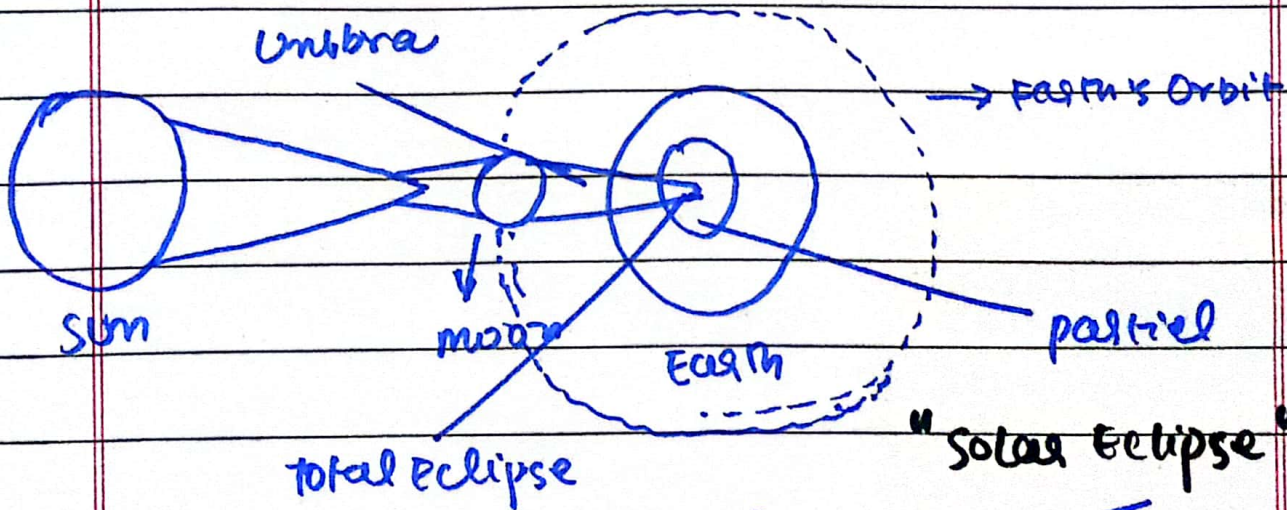 Umbra
→ Earth's Orbit
Sun
moon
Earth
partiel
Total Eclipse
"Solar Eclipse"